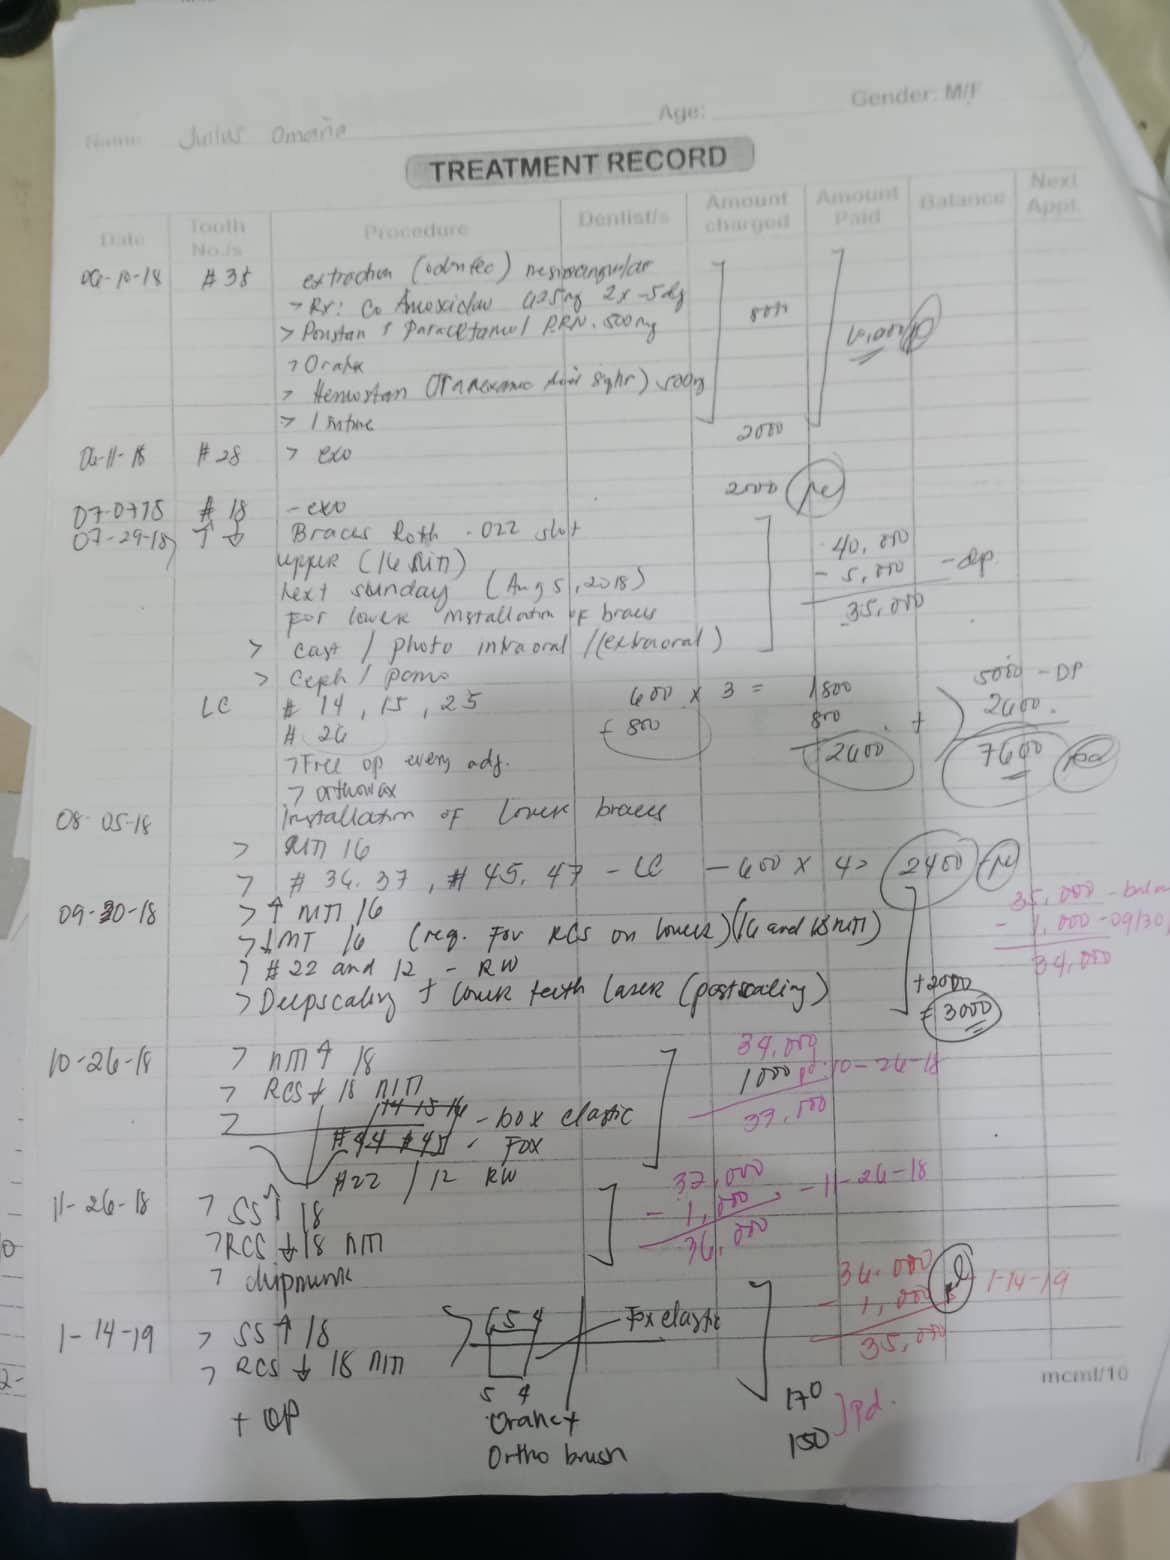 Name: Julius Omaña Age: Gender: M/F
TREATMENT RECORD
Date Tooth No./s Procedure Dentist/s Amount charged Amount Paid Balance Next Appt.
06-10-18 # 38 extraction (odontec) mesioangular
> Rx: Co Amoxiclav 625mg 2x -5dy
> Ponstan & Paracetamol P.R.N. 500mg 8000
> Orahex
> Hemostan (Tranexamic Acid 8qhr) 500mg
> 1 suture
2000
06-11-18 # 28 > exo
2000
07-07-18 # 18 - exo
07-29-18 ↑ ↓ Braces Roth .022 slot
upper (16 NiTi) 40,000
next sunday (Aug 5, 2018) - 5,000 - dp.
For lower installation of braces 35,000
> cast / photo intraoral /(extraoral)
> Ceph / pano
LC # 14, 15, 25 600 x 3 = 1800 5000 - DP
# 26 + 800 800 + 2600.
> Free op every adj. 2600 7600 pd
> orthowax
08-05-18 Installation of lower braces
> NiTi 16
> # 36. 37, # 45, 47 - LC - 600 x 4 = 2400
09-30-18 > ↑ NiTi 16 35,000 -
> ↓ MT 16 (req. For RCS on lower) (16 and 18 NiTi) - 1,000 - 09/30
> # 22 and 12 - RW 34,000
> Deepscaling + lower teeth laser (postscaling) +2000
= 3000
10-26-18 > nm ↑ 18 34,000
> RCS ↓ 18 NiTi 1000 pd. 10-26-18
> 14 15 16 - box elastic 37,000
#44 #45 - Fox
#22 / 12 RW
11-26-18 > SS ↑ 18 37,000
- 1,000 - 11-26-18
> RCS ↓ 18 nm 36,000
> chipmunk
36.000
- 1,000 pd 1-14-19
1-14-19 > SS ↑ 18 > 6 5 4 Fox elastic 35,000
> RCS ↓ 18 NiTi
mcml/10
+ OP 5 4
Orahex 170
Ortho brush 150 pd.